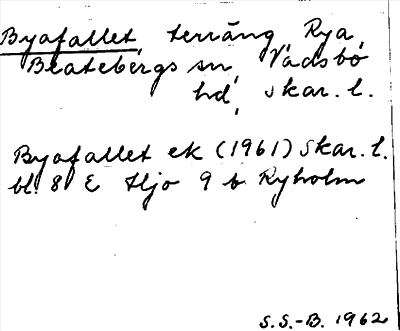 Byafallet terräng, Rya,
Beatebergs sn, Vadsbo
hd, Skar. l.
Byafallet ek (1961) Skar. l.
bl. 8 E Hjo 9 b Ryholm
S.S.-B. 1962